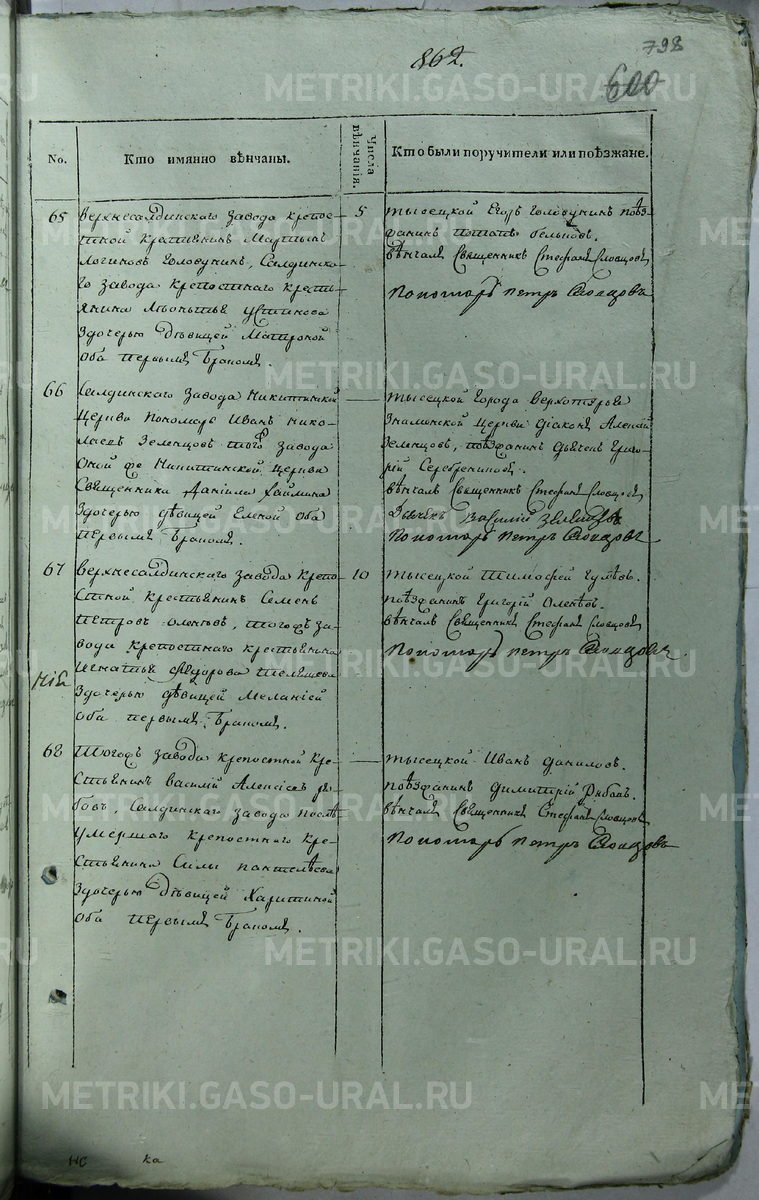 862.
798
600
No.
Кто имянно вѣнчаны.
Числа вѣнчанія.
Кто были поручители или поѣзжане.
65
Верхнесалдинскаго завода крепос-
тной крестьянинъ Мартынъ
Логиновъ Головунинъ, Салдинска-
го завода крепостнаго кресть-
янина Устинова
здочерью дѣвицей Матроной
оба первымъ бракомъ.
5
тысецкой Егоръ Головунинъ поѣз-
жанинъ
вѣнчалъ Священникъ Стефанъ Словцовъ
Пономарь Петръ
66
Салдинскаго завода Никитинской
Церкви Пономарь Иванъ Нико-
лаевъ Зеленцовъ тогожъ завода
оной же Никитинской Церкви
Священника Даніила
здочерью дѣвицей Еленой оба
первымъ бракомъ.
тысецкой Города Верхотурья
Знаменской Церкви діаконъ Алексій
Зеленцовъ, поѣзжанинъ дьячекъ Григо-
рій Серебрениковъ.
вѣнчалъ Священникъ Стефанъ Словцовъ
Дьячекъ Василий Зеленцовъ
Пономарь Петръ
67
Верхнесалдинскаго завода крепо-
стной крестьянинъ Семенъ
Петровъ Оленевъ, тогожъ за-
вода крепостнаго крестьянина
Игнатья Федорова
здочерью дѣвицей Меланіей
оба первымъ бракомъ.
10
тысецкой Тимофей
поѣзжанинъ Григорій Оленевъ.
вѣнчалъ Священникъ Стефанъ Словцовъ
Пономарь Петръ
68
Тогожъ завода крепостной кре-
стьянинъ Василій Алексіевъ Ря-
бовъ, Салдинскаго завода послѣ
умершаго крепостнаго кре-
стьянина Силы Пантелѣева
здочерью дѣвицей Харитиной
оба первымъ бракомъ.
тысецкой Иванъ Даниловъ.
поѣзжанинъ Димитрій Рябовъ.
вѣнчалъ Священникъ Стефанъ Словцовъ
Пономарь Петръ
METRIKI.GASO-URAL.RU